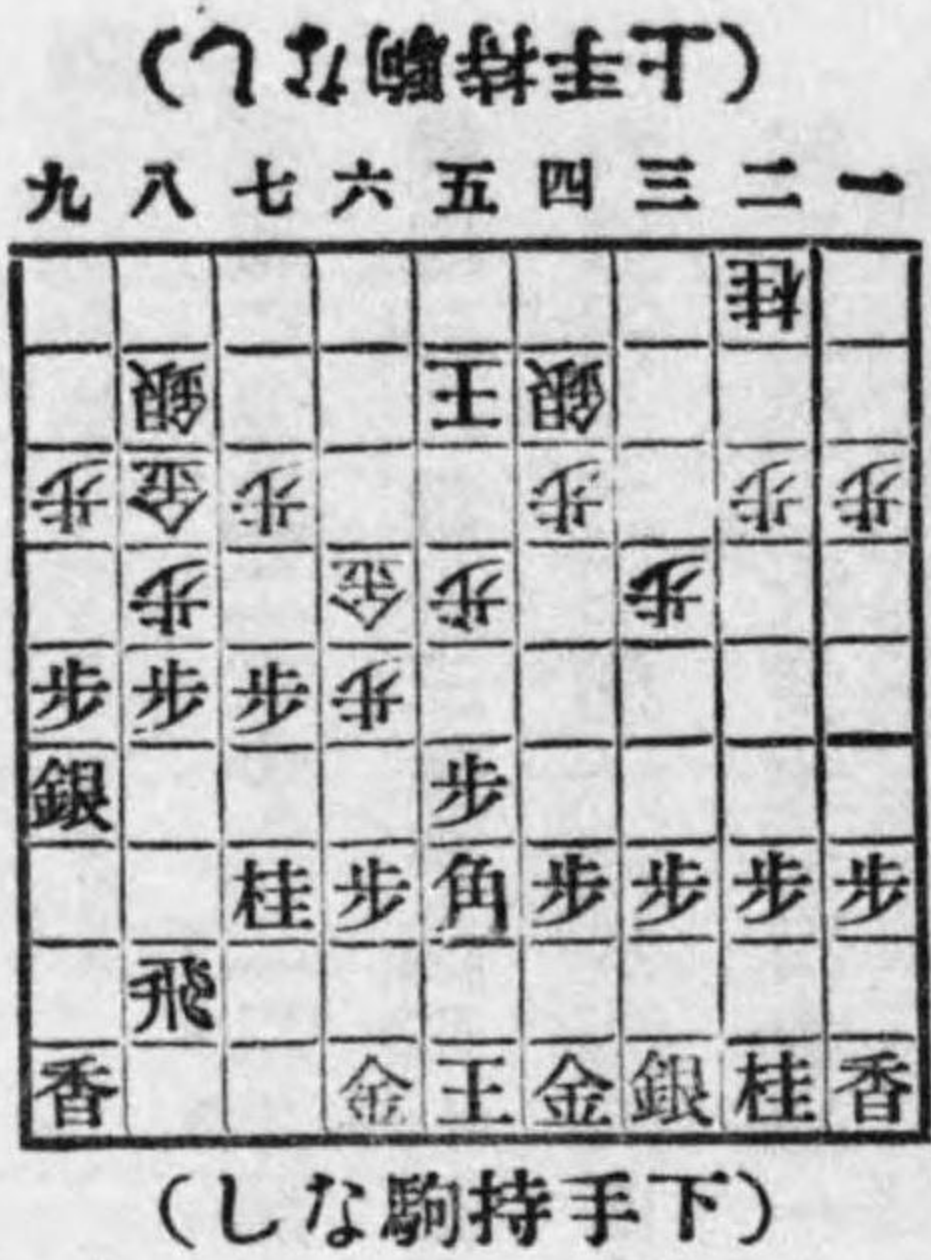 (上手持駒なし)
九 八 七 六 五 四 三 二 一
桂
銀 王 銀
歩 金 歩 歩 歩 歩
歩 金 歩 歩
歩 歩 歩 歩
銀 歩
桂 歩 角 歩 歩 歩 歩
飛
香 金 王 金 銀 桂 香
(しな駒持手下)